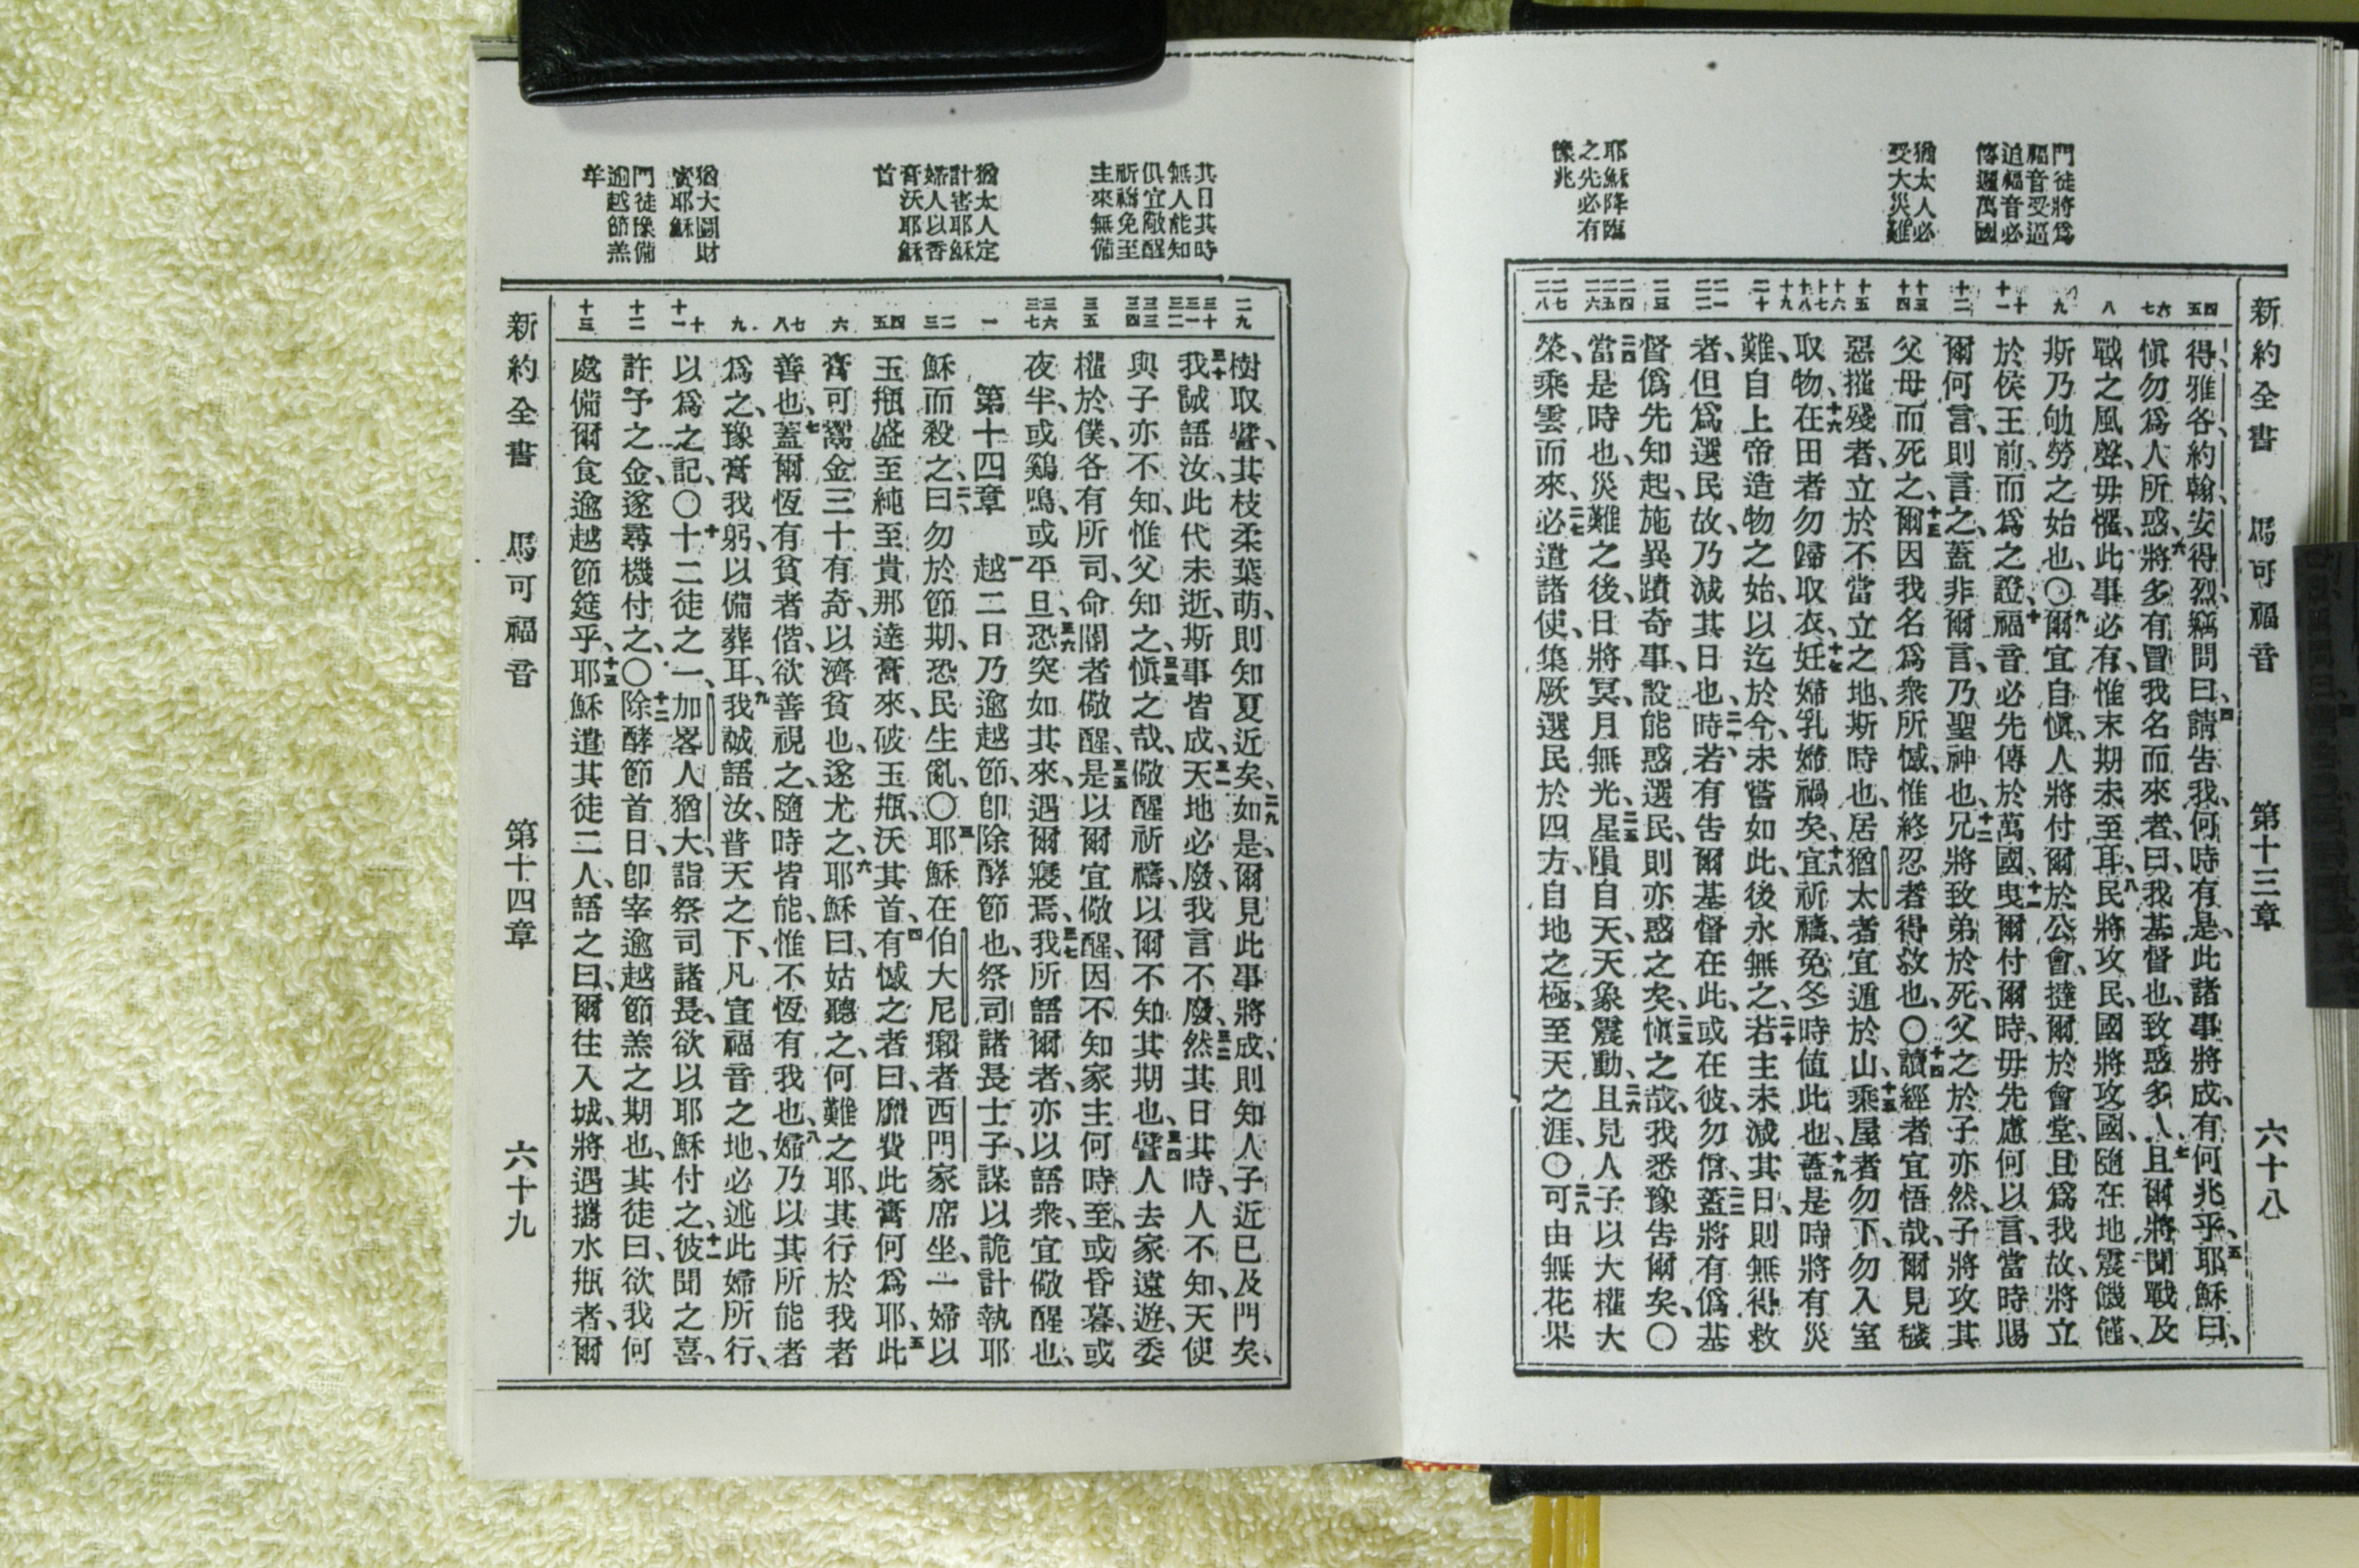 新約全書 馬可福音 第十三章 六十八
門徒將爲
福音受逼
迫福音必
傳遍萬國
猶太人必
受大災難
耶穌降臨
之先必有
豫兆
得雅各、約翰、安得烈、竊問曰、四請告我、何時有是、此諸事將成、有何兆乎、五耶穌曰、
愼勿爲人所惑、六將多有冒我名而來者、曰、我基督也、致惑多人、七且爾將聞戰及
戰之風聲、毋懼、此事必有、惟末期未至耳、八民將攻民、國將攻國、隨在地震饑饉、
斯乃劬勞之始也、〇九爾宜自愼、人將付爾於公會、撻爾於會堂、且爲我故、將立
於侯王前、而爲之證、十福音必先傳於萬國、十一曳爾付爾時、毋先慮何以言、當時賜
爾何言、則言之、蓋非爾言、乃聖神也、十二兄將致弟於死、父之於子亦然、子將攻其
父母而死之、十三爾因我名爲衆所憾、惟終忍者得救也、〇十四讀經者宜悟哉、爾見穢
惡摧殘者、立於不當立之地、斯時也、居猶太者宜遁於山、十五乘屋者勿下、勿入室
取物、十六在田者勿歸取衣、十七妊婦乳婦禍矣、十八宜祈禱、免冬時値此也、十九蓋是時將有災
難、自上帝造物之始、以迄於今、未嘗如此、後永無之、二十若主未減其日、則無得救
者、但爲選民故、乃減其日也、二一時若有告爾基督在此、或在彼、勿信、二二蓋將有僞基
督僞先知起、施異蹟奇事、設能惑選民、則亦惑之矣、二三愼之哉、我悉豫告爾矣、〇
二四當是時也、災難之後、日將冥、月無光、二五星隕自天、天象震動、二六且見人子以大權大
榮、乘雲而來、二七必遣諸使、集厥選民於四方、自地之極、至天之涯、〇二八可由無花果
新約全書 馬可福音 第十四章 六十九
其日其時
無人能知
俱宜儆醒
祈禱免至
主來無備
猶太人定
計害耶穌
婦人以香
膏沃耶穌
首
猶大圖財
賣耶穌
門徒豫備
逾越節羔
羊
樹取譬、其枝柔葉萌、則知夏近矣、二九如是、爾見此事將成、則知人子近已及門矣、
三十我誠語汝、此代未逝、斯事皆成、三一天地必廢、我言不廢、三二然其日其時、人不知、天使
與子亦不知、惟父知之、三三愼之哉、儆醒祈禱、以爾不知其期也、三四譬人去家遠遊、委
權於僕、各有所司、命閽者儆醒、三五是以爾宜儆醒、因不知家主何時至、或昏暮、或
夜半、或鷄鳴、或平旦、三六恐突如其來、遇爾寢焉、三七我所語爾者、亦以語衆、宜儆醒也、
第十四章 一越二日乃逾越節、卽除酵節也、祭司諸長士子、謀以詭計執耶
穌而殺之、二曰、勿於節期、恐民生亂、〇三耶穌在伯大尼癩者西門家席坐、一婦以
玉瓶盛至純至貴那達膏來、破玉瓶、沃其首、四有憾之者曰、靡費此膏何爲耶、五此
膏可鬻金三十有奇、以濟貧也、遂尤之、六耶穌曰、姑聽之、何難之耶、其行於我者
善也、七蓋爾恆有貧者偕、欲善視之、隨時皆能、惟不恆有我也、八婦乃以其所能者
爲之、豫膏我躬、以備葬耳、九我誠語汝、普天之下、凡宣福音之地、必述此婦所行、
以爲之記、〇十十二徒之一、加畧人猶大、詣祭司諸長、欲以耶穌付之、十一彼聞之喜、
許予之金、遂尋機付之、〇十二除酵節首日、卽宰逾越節羔之期也、其徒曰、欲我何
處備爾食逾越節筵乎、十三耶穌遣其徒二人、語之曰、爾往入城、將遇攜水瓶者、爾